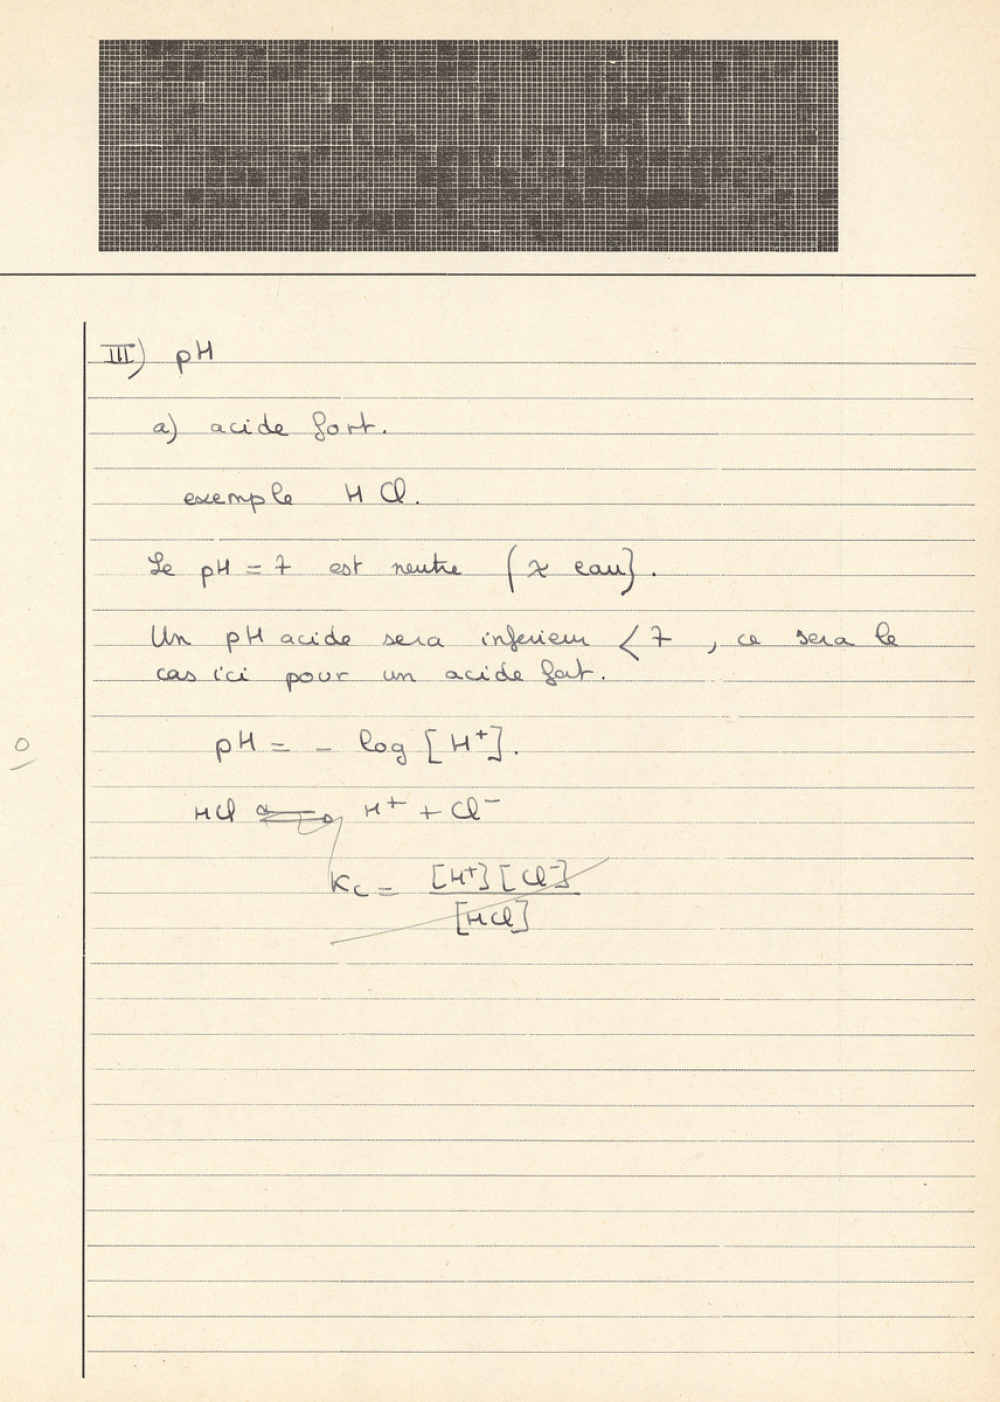 III) pH
a) acide fort.
exemple HCl.
Le pH = 7 est neutre ( eau).
Un pH acide sera inferieur < 7 , ce sera le
cas ici pour un acide fort.
pH = - log [H⁺].
0
HCl ⇌ H⁺ + Cl⁻
Kc = [H⁺][Cl⁻] / [HCl]